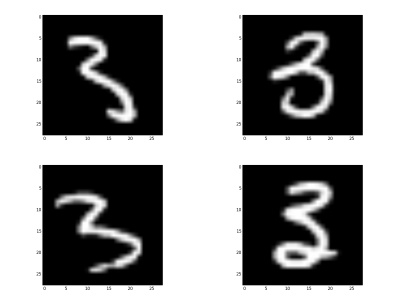 0
5
10
15
20
25
3
0 5 10 15 20 25
0
5
10
15
20
25
3
0 5 10 15 20 25
0
5
10
15
20
25
3
0 5 10 15 20 25
0
5
10
15
20
25
3
0 5 10 15 20 25